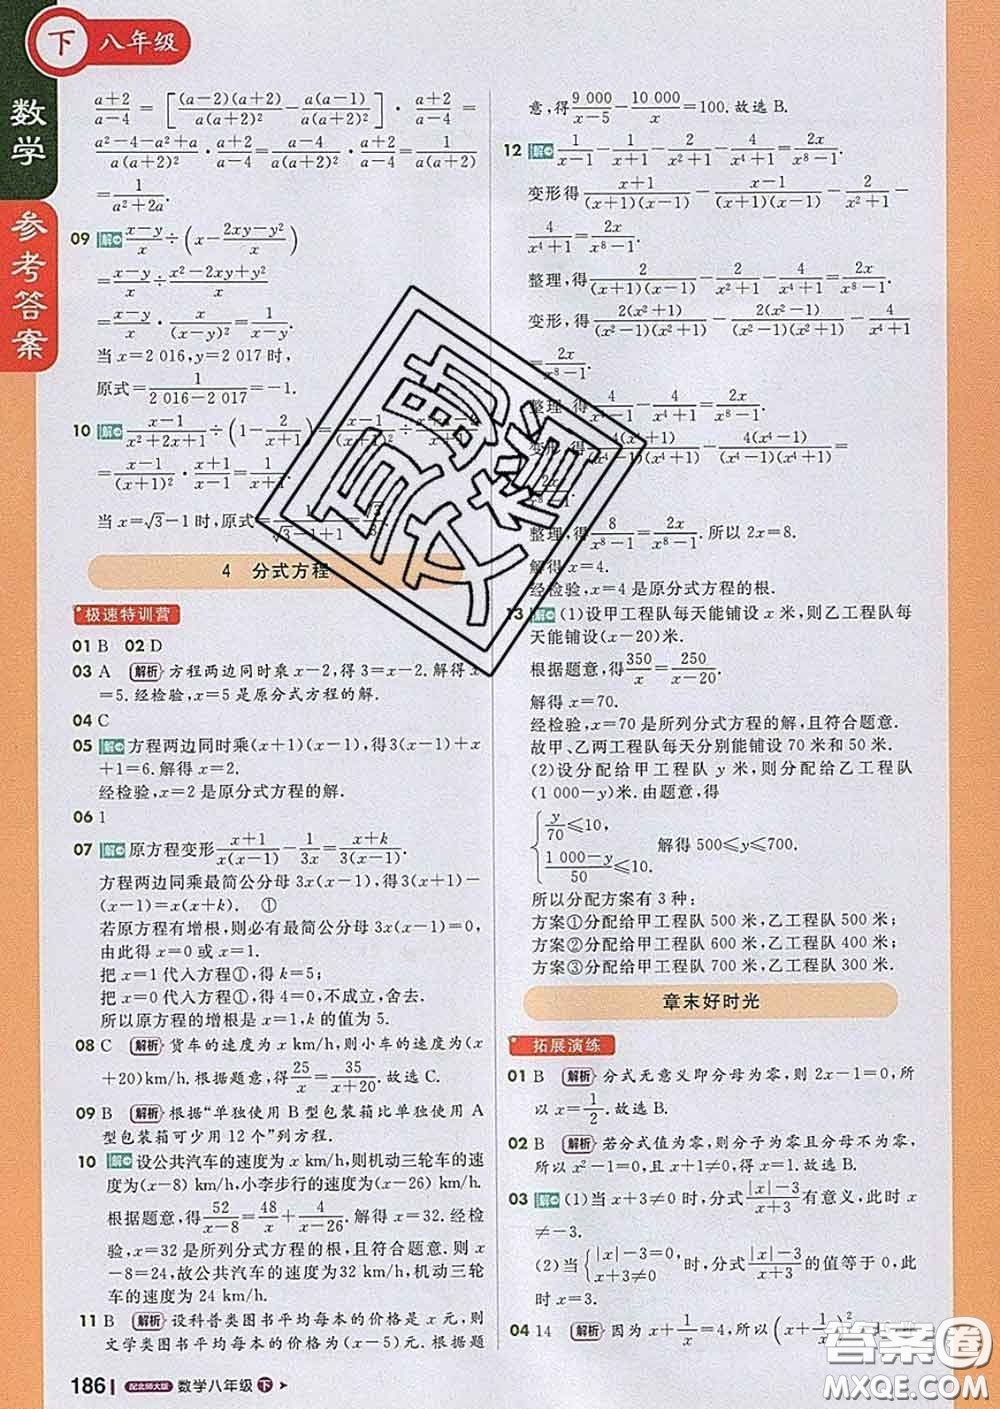 下 八年级
数学
参考答案
(a+2)/(a-4)=[(a-2)(a+2)/(a(a+2)²)-a(a-1)/(a(a+2)²)]·(a+2)/(a-4)=
(a²-4-a²+a)/(a(a+2)²)·(a+2)/(a-4)=(a-4)/(a(a+2)²)·(a+2)/(a-4)=1/(a(a+2))
=1/(a²+2a).
09 解 (x-y)/x÷(x-(2xy-y²)/x)
=(x-y)/x÷(x²-2xy+y²)/x
=(x-y)/x·x/(x-y)²=1/(x-y).
当x=2 016,y=2 017时,
原式=1/(2 016-2 017)=-1.
10 解 (x-1)/(x²+2x+1)÷(1-2/(x+1))=
=(x-1)/(x+1)²·(x+1)/(x-1)=1/(x+1).
当x=√3-1时,原式=1/(√3-1+1)
4 分式方程
极速特训营
01 B 02 D
03 A 解析 方程两边同时乘x-2,得3=x-2.解得x
=5.经检验,x=5是原分式方程的解.
04 C
05 解 方程两边同时乘(x+1)(x-1),得3(x-1)+x
+1=6.解得x=2.
经检验,x=2是原分式方程的解.
06 1
07 解 原方程变形(x+1)/(x(x-1))-1/(3x)=(x+k)/(3(x-1)).
方程两边同乘最简公分母3x(x-1),得3(x+1)-
(x-1)=x(x+k). ①
若原方程有增根,则必有最简公分母3x(x-1)=0,
由此得x=0或x=1.
把x=1代入方程①,得k=5;
把x=0代入方程①,得4=0,不成立,舍去.
所以原方程的增根是x=1,k的值为5.
08 C 解析 货车的速度为x km/h,则小车的速度为(x
+20)km/h.根据题意,得25/x=35/(x+20).故选C.
09 B 解析 根据“单独使用B型包装箱比单独使用A
型包装箱可少用12个”列方程.
10 解 设公共汽车的速度为x km/h,则机动三轮车的速
度为(x-8) km/h,小李步行的速度为(x-26) km/h.
根据题意,得52/(x-8)=48/x+4/(x-26).解得x=32.经检
验,x=32是所列分式方程的解,且符合题意.则x
-8=24,故公共汽车的速度为32 km/h,机动三轮
车的速度为24 km/h.
11 B 解析 设科普类图书平均每本的价格是x元,则
文学类图书平均每本的价格为(x-5)元.根据题
意,得9 000/(x-5)-10 000/x=100.故选B.
12 解 1/(x-1)-1/(x+1)-2/(x²+1)-4/(x⁴+1)=2x/(x⁸-1).
变形得(x+1)/((x+1)(x-1))-(x-1)/((x+1)(x-1))-2/(x²+1)-
4/(x⁴+1)=2x/(x⁸-1).
整理,得2/((x+1)(x-1))-2/(x²+1)-4/(x⁴+1)=2x/(x⁸-1).
变形,得2(x²+1)/((x²-1)(x²+1))-2(x²-1)/((x²-1)(x²+1))-4/(x⁴+1)
=2x/(x⁸-1).
整理,得4/(x⁴-1)-4/(x⁴+1)=2x/(x⁸-1).
变形,得4(x⁴+1)/((x⁴-1)(x⁴+1))-4(x⁴-1)/((x⁴-1)(x⁴+1))=
2x/(x⁸-1).
整理,得8/(x⁸-1)=2x/(x⁸-1).所以2x=8.
解得x=4.
经检验,x=4是原方程的根.
13 解 (1)设甲工程队每天能铺设x米,则乙工程队每
天能铺设(x-20)米.
根据题意,得350/x=250/(x-20).
解得x=70.
经检验,x=70是所列分式方程的解,且符合题意.
故甲、乙两工程队每天分别能铺设70米和50米.
(2)设分配给甲工程队y米,则分配给乙工程队
(1 000-y)米.由题意,得
{y/70≤10,
(1 000-y)/50≤10, 解得500≤y≤700.
所以分配方案有3种:
方案①分配给甲工程队500米,乙工程队500米;
方案②分配给甲工程队600米,乙工程队400米;
方案③分配给甲工程队700米,乙工程队300米.
章末好时光
拓展演练
01 B 解析 分式无意义即分母为零,则2x-1=0,所
以x=1/2.故选B.
02 B 解析 若分式值为零,则分子为零且分母不为零,
所以x²-1=0且x+1≠0.所以x=1.故选B.
03 解 (1)当x+3≠0时,分式(|x|-3)/(x+3)有意义,此时x
≠-3.
(2)当{|x|-3=0, x+3≠0时,分式(|x|-3)/(x+3)的值等于0,此
时x=3.
04 14 解析 因为x+1/x=4,所以(x+1/x)²
186 配北师大版 数学八年级 下
答案圈
MXQE.COM